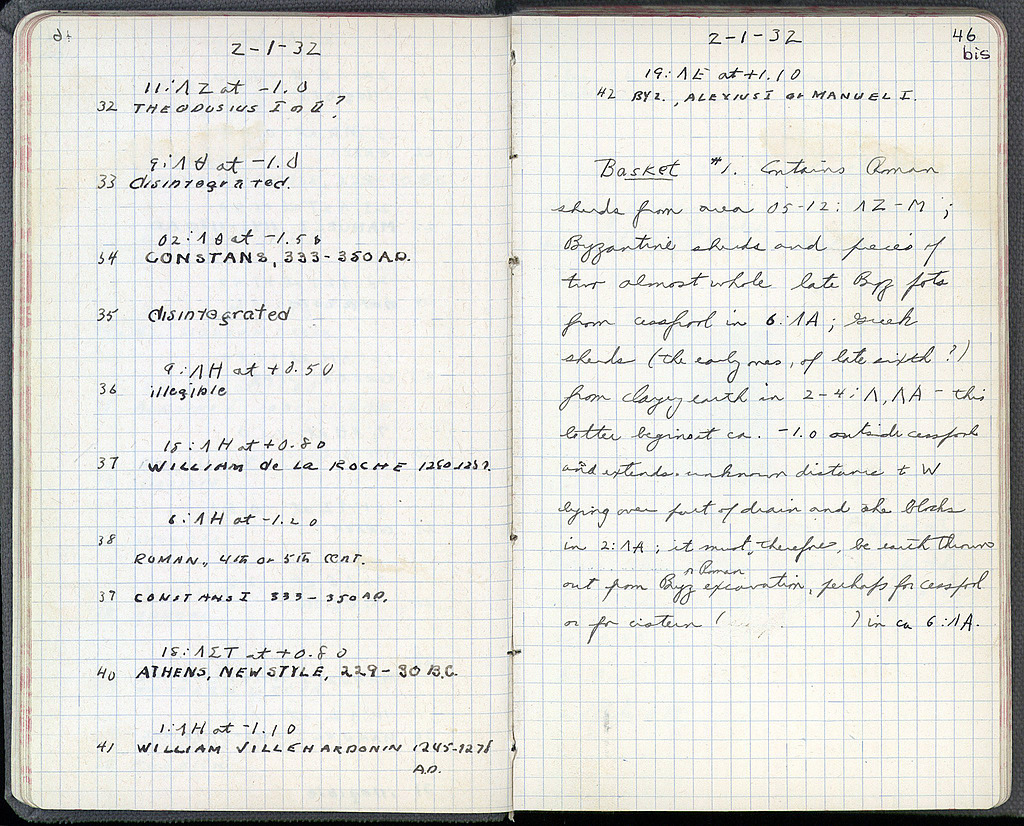 2-1-32
11:ΛΖ at -1.0
32 THEODOSIUS I or II?
9:ΛΘ at -1.0
33 disintegrated.
02:ΛΘ at -1.50
34 CONSTANS, 333-350 A.D.
35 disintegrated
9:ΛΗ at +0.50
36 illegible
18:ΛΗ at +0.80
37 WILLIAM de La ROCHE 1280-1287.
6:ΛΗ at -1.20
38
ROMAN, 4th or 5th CENT.
39 CONSTANS I 333-350 AD.
18:ΛΣΤ at +0.80
40 ATHENS, NEW STYLE, 229-30 B.C.
1:ΛΗ at -1.10
41 WILLIAM VILLEHARDONIN 1245-1278
A.D.
2-1-32
46
bis
19:ΛΕ at +1.10
42 BYZ., ALEXIUS I or MANUEL I.
Basket #1. Contains Roman
sherds from area 05-12: ΛΖ-Μ;
Byzantine sherds and pieces of
two almost whole late Byz pots
from cesspool in 6:ΛΑ; Greek
sherds (the early ones, of late sixth?)
from clayey earth in 2-4:Λ,ΛΑ - this
latter begins at ca. -1.0 outside cesspool
and extends unknown distance to W
lying over part of drain and the blocks
in 2:ΛΑ; it must, therefore, be earth thrown
or Roman
out from Byz excavation, perhaps for cesspool
or for cistern ( ) in ca 6:ΛΑ.